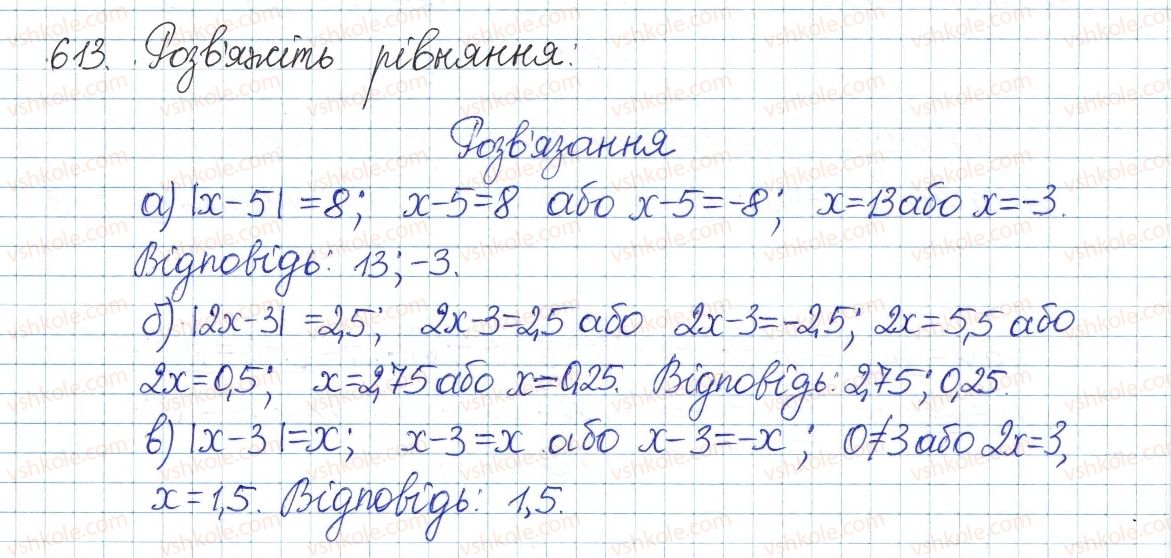 613. Розв'яжіть рівняння:
Розв'язання
а) |x-5| =8; x-5=8 або x-5=-8; x=13 або x=-3.
Відповідь: 13; -3.
б) |2x-3| =2,5; 2x-3=2,5 або 2x-3=-2,5; 2x=5,5 або
2x=0,5; x=2,75 або x=0,25. Відповідь: 2,75; 0,25.
в) |x-3|=x; x-3=x або x-3=-x; 0≠3 або 2x=3,
x=1,5. Відповідь: 1,5.